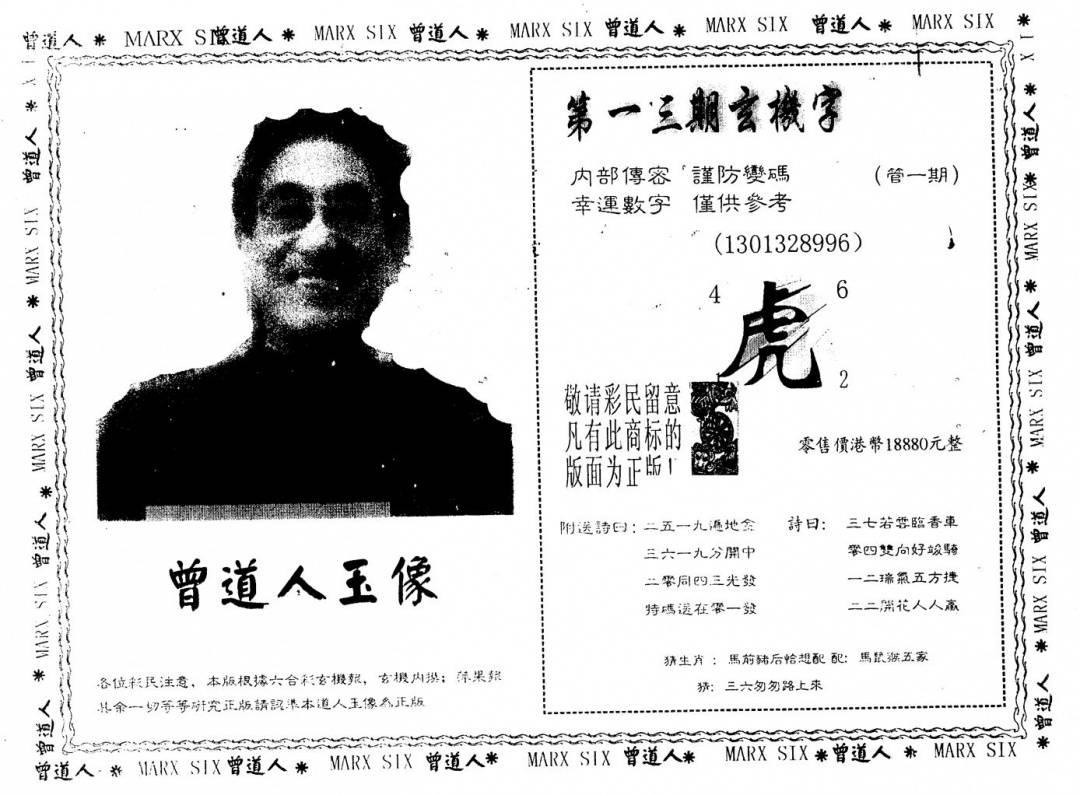 曾道人 * MARX SIX 曾道人 * MARX SIX 曾道人 * MARX SIX 曾道人 * MARX SIX 曾道人 * MARX SIX *
第一三期玄機字
内部傳密 謹防變碼 (管一期)
幸運數字 僅供參考
(1301328996)
4 6
虎
2
敬请彩民留意
凡有此商标的
版面为正版!
零售價港幣18880元整
附送詩曰: 二五一九遍地金
三六一九分開中
二零同四三光發
特碼送在零一發
詩曰: 三七若雲臨香車
零四雙向好竣騎
一二瑞氣五方捷
二二開花人人贏
猜生肖: 馬前豬后恰想配 配: 馬鼠猴五家
猜: 三六匆匆路上來
曾道人玉像
各位彩民注意, 本版根據六合彩玄機報, 玄機内
其余一切等等研究正版請認準本道人玉像為正版
曾道人 * MARX SIX 曾道人 * MARX SIX 曾道人 * MARX SIX 曾道人 * MARX SIX * 曾道人 * MARX SIX